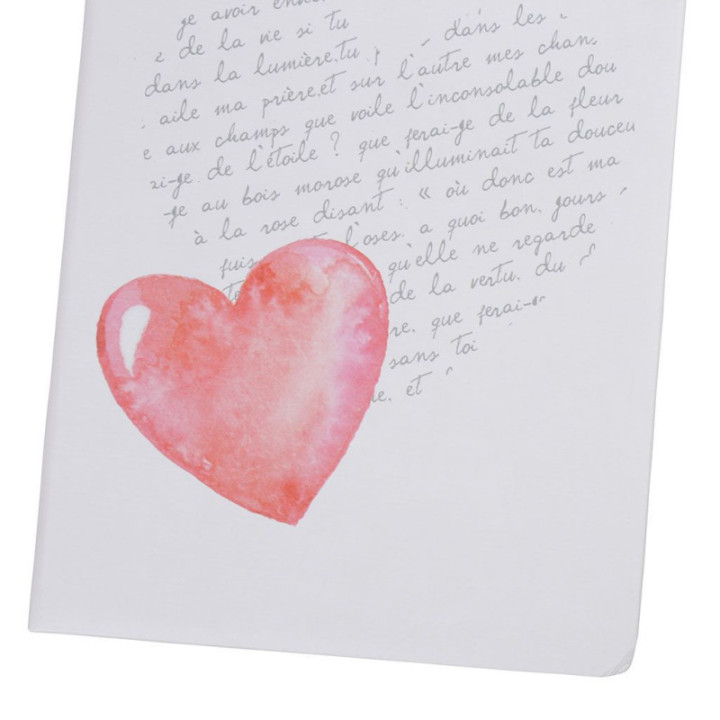 je avoir
de la vie si tu
dans la lumière.tu dans les
aile ma prière.et sur l'autre mes chan.
e aux champs que voile l'inconsolable dou
ai-je de l'étoile ? que ferai-je de la fleur
-je au bois morose qu'illuminait ta douceu
à la rose disant : « où donc est ma
puis l'oses. a quoi bon. jours
qu'elle ne regarde
de la vertu. du
re. que ferai-
sans toi
et